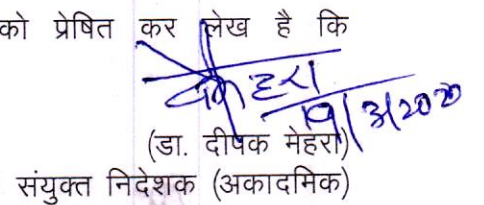 को प्रेषित कर लेख है कि
मेहरा
19/3/2020
(डा. दीपक मेहरा)
संयुक्त निदेशक (अकादमिक)